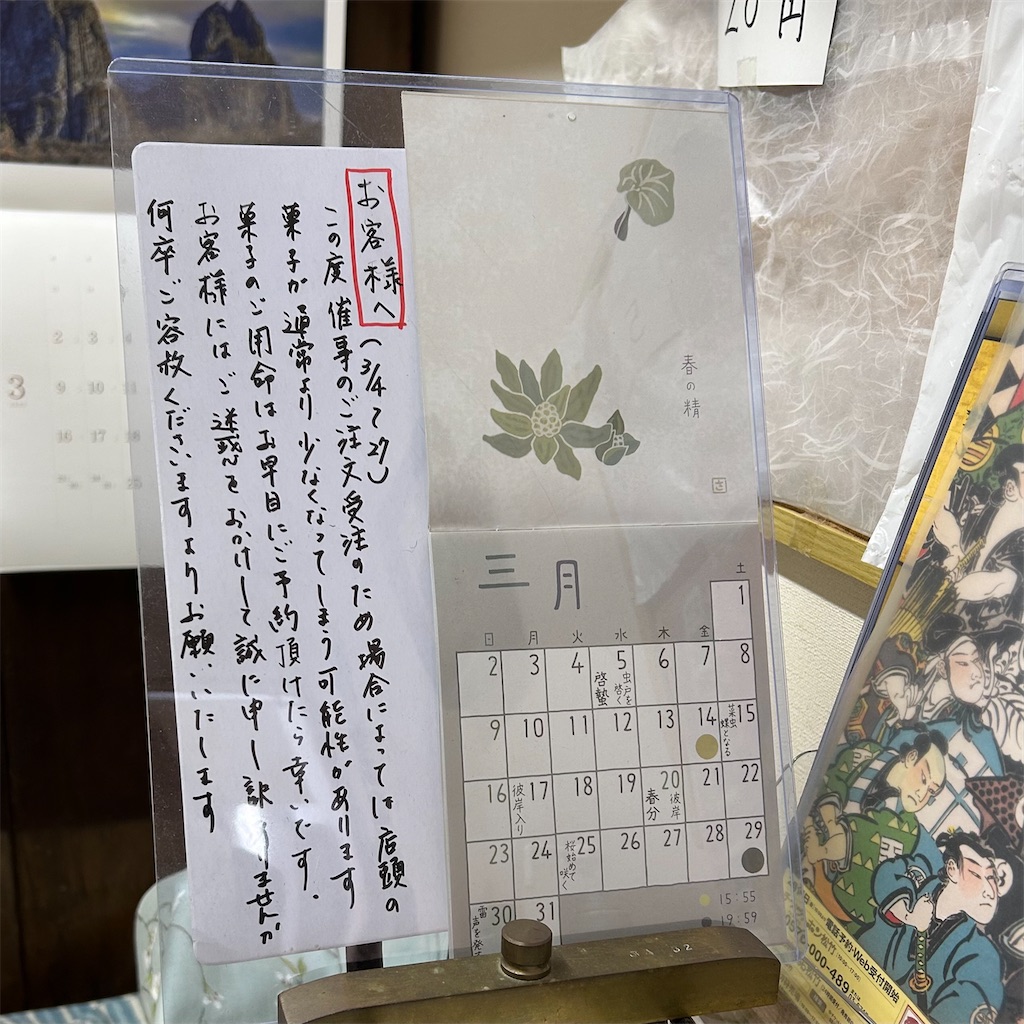 お客様へ (3/4〜27)
この度催事のご注文受注のため場合によっては店頭の
菓子が通常より少なくなってしまう可能性があります
菓子のご用命はお早目にご予約頂けたら幸いです.
お客様にはご迷惑をおかけして誠に申し訳ありませんが
何卒ご容赦くださいますようお願いいたします
春の精
三月
土
1
日 月 火 水 木 金
2 3 4 5 6 7 8
啓蟄
虫戸を啓く
9 10 11 12 13 14 15
菜虫蝶となる
16 17 18 19 20 21 22
彼岸入り
春分
彼岸
23 24 25 26 27 28 29
桜始めて咲く
30 31
15:55
19:59
20円
3
2 3
9 10 11
16 17 18
電話予約・Web受付開始
000-489